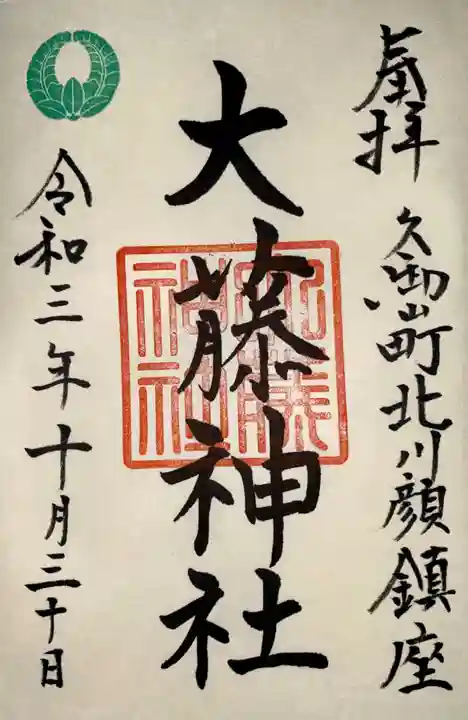 奉拝
久御山町北川顔鎮座
大藤神社
大藤神社
令和三年十月三十日